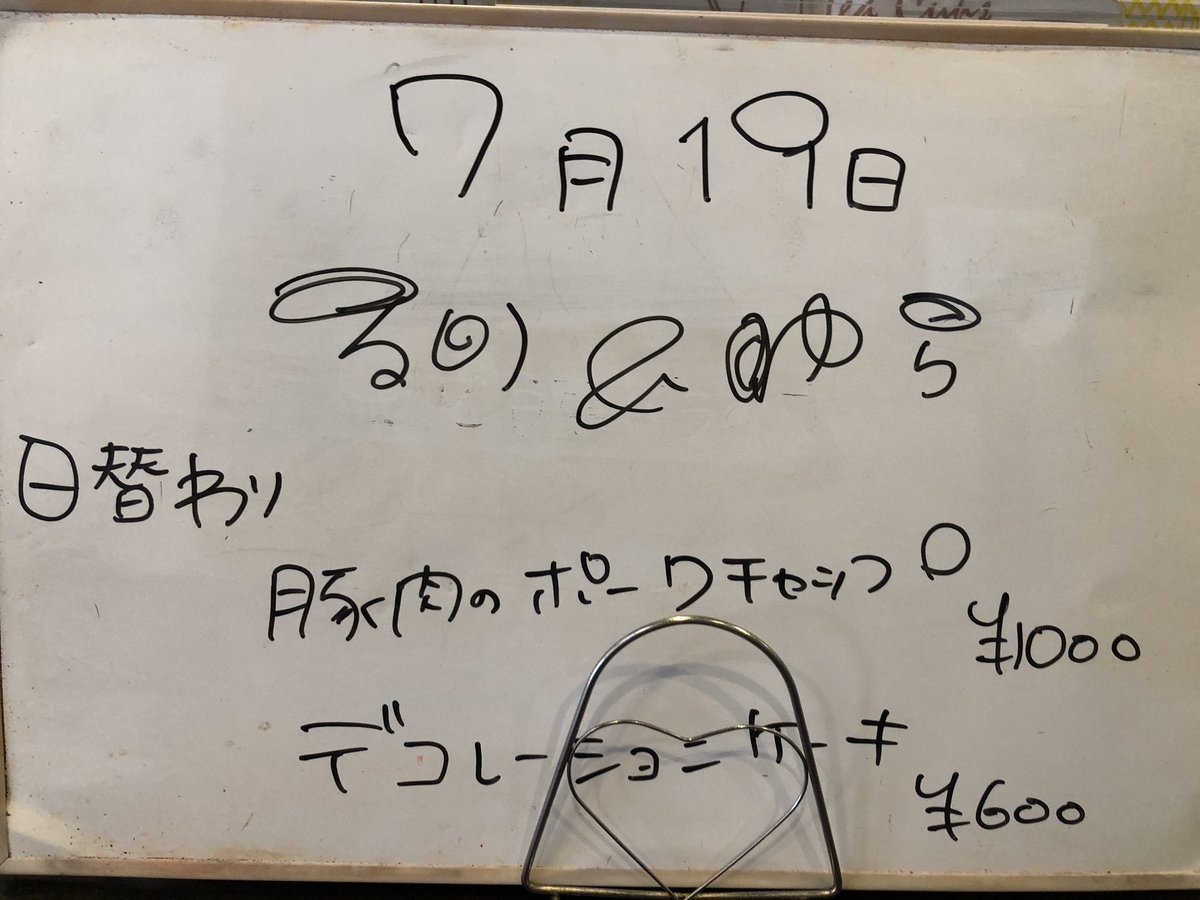 7月19日
& ゆら
日替わり
豚肉のポークチャップ
¥1000
デコレーションケーキ
¥600